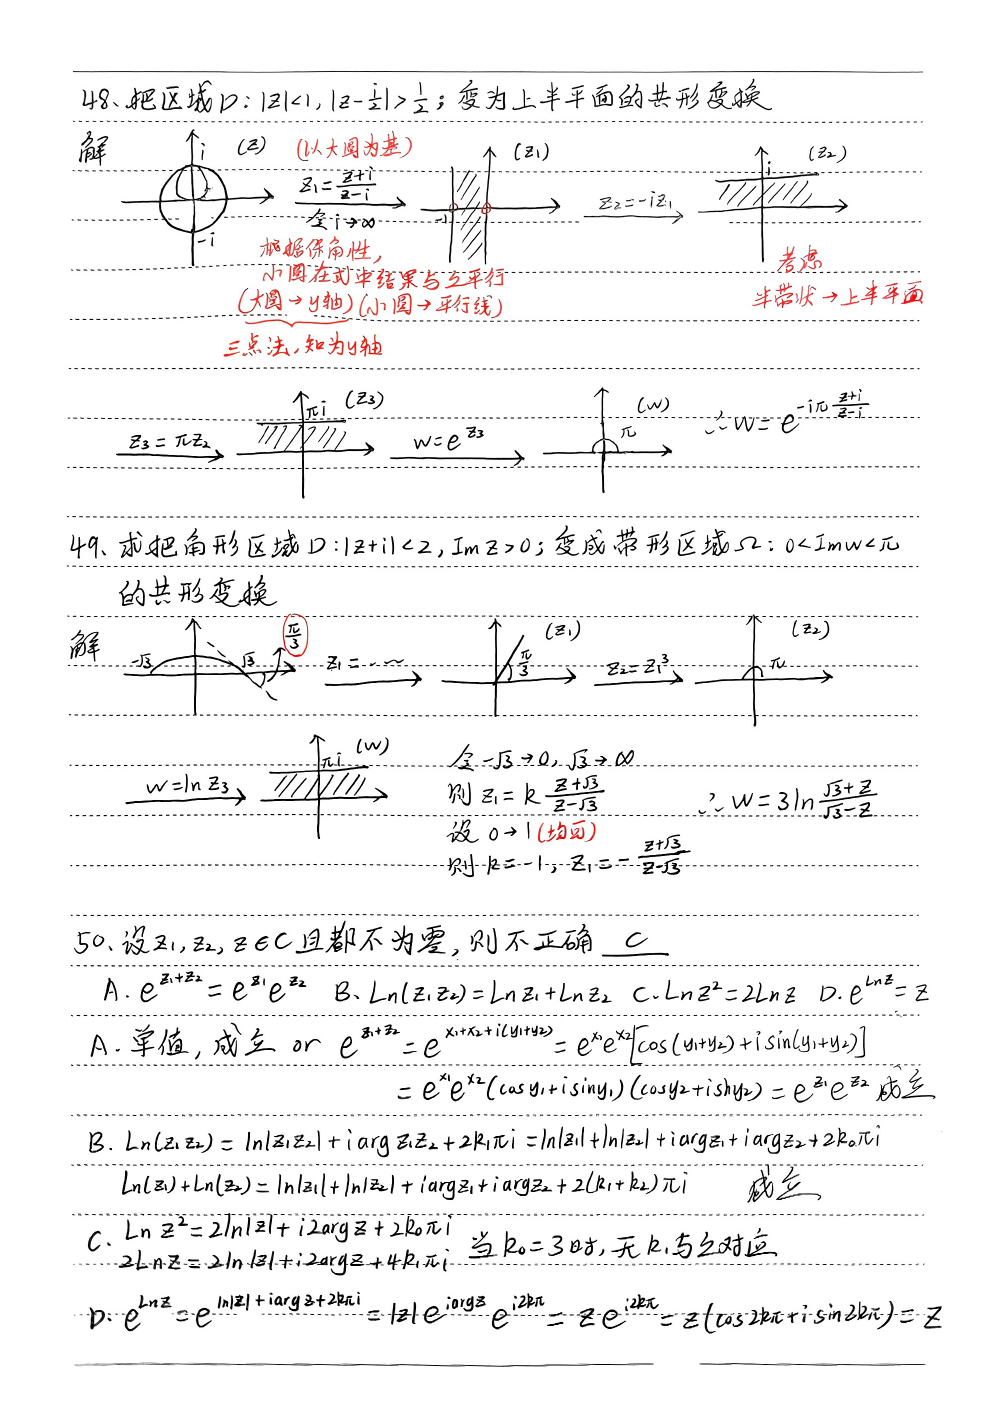 48、把区域D：|z|<1, |z-i/2|>1/2；变为上半平面的共形变换
解
i (z) (以大圆为基) (z1) (z2)
z1=(z+i)/(z-i) -1 z2=-iz1 i
令i→∞
-i
根据保角性，
小圆在式中结果与之平行
(大圆→y轴)(小圆→平行线)
三点法，知为y轴
考虑
半带状→上半平面
z3=πz2 πi (z3) w=e^z3 π (w) ∴w=e^(-iπ(z+i)/(z-i))
49、求把角形区域D:|z+i|<2, Im z>0；变成带形区域Ω：0<Imw<π
的共形变换
解 -√3 √3 π/3 z1=…… π/3 (z1) z2=z1^3 π (z2)
w=ln z3 πi (w)
令-√3→0, √3→∞
则 z1=k (z+√3)/(z-√3)
设 0→1(均可)
则 k=-1, z1=-(z+√3)/(z-√3)
∴w=3ln (√3+z)/(√3-z)
50、设z1,z2,z∈C且都不为零，则不正确 C
A. e^(z1+z2)=e^z1 e^z2 B. Ln(z1z2)=Lnz1+Lnz2 C. Lnz^2=2Lnz D. e^Lnz=z
A. 单值，成立 or e^(z1+z2)=e^(x1+x2+i(y1+y2))=e^x1 e^x2[cos(y1+y2)+isin(y1+y2)]
=e^x1 e^x2(cosy1+isiny1)(cosy2+isiny2)=e^z1 e^z2 成立
B. Ln(z1z2)=ln|z1z2|+iarg z1z2+2k1πi=ln|z1|+ln|z2|+iargz1+iargz2+2k0πi
Ln(z1)+Ln(z2)=ln|z1|+ln|z2|+iargz1+iargz2+2(k1+k2)πi 成立
C. Ln z^2=2ln|z|+i2argz+2k0πi
2Lnz=2ln|z|+i2argz+4k1πi 当k0=3时，无k1与之对应
D. e^Lnz=e^(ln|z|+iargz+2kπi)=|z|e^(iargz) e^(i2kπ)=ze^(i2kπ)=z(cos2kπ+isin2kπ)=z